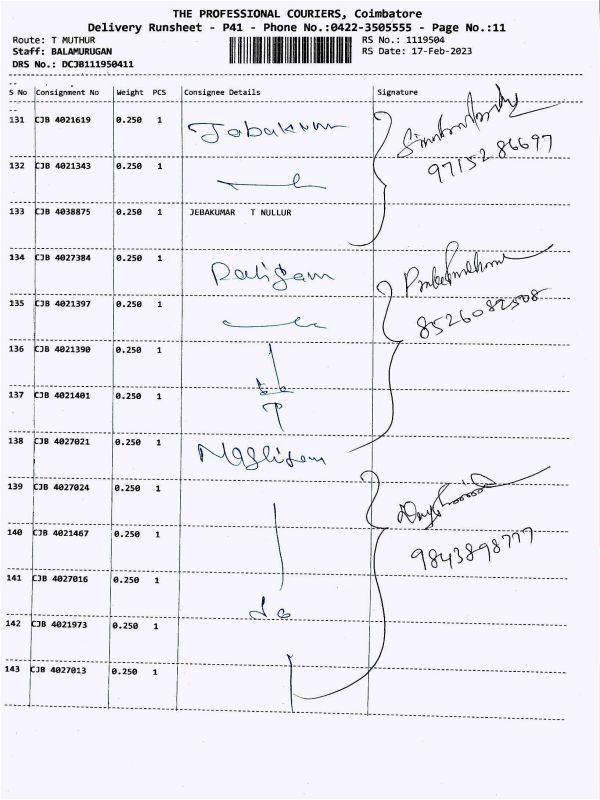 THE PROFESSIONAL COURIERS, Coimbatore
Delivery Runsheet - P41 - Phone No.:0422-3505555 - Page No.:11
Route: T MUTHUR RS No.: 1119504
Staff: BALAMURUGAN RS Date: 17-Feb-2023
DRS No.: DCJB111950411
S No Consignment No Weight PCS Consignee Details Signature
131 CJB 4021619 0.250 1 Jebakumar
9715286697
132 CJB 4021343 0.250 1
133 CJB 4038875 0.250 1 JEBAKUMAR T NULLUR
134 CJB 4027384 0.250 1
135 CJB 4021397 0.250 1
8526082508
136 CJB 4021390 0.250 1
137 CJB 4021401 0.250 1
138 CJB 4027021 0.250 1
139 CJB 4027024 0.250 1
140 CJB 4021467 0.250 1
9843898777
141 CJB 4027016 0.250 1
do
142 CJB 4021973 0.250 1
143 CJB 4027013 0.250 1